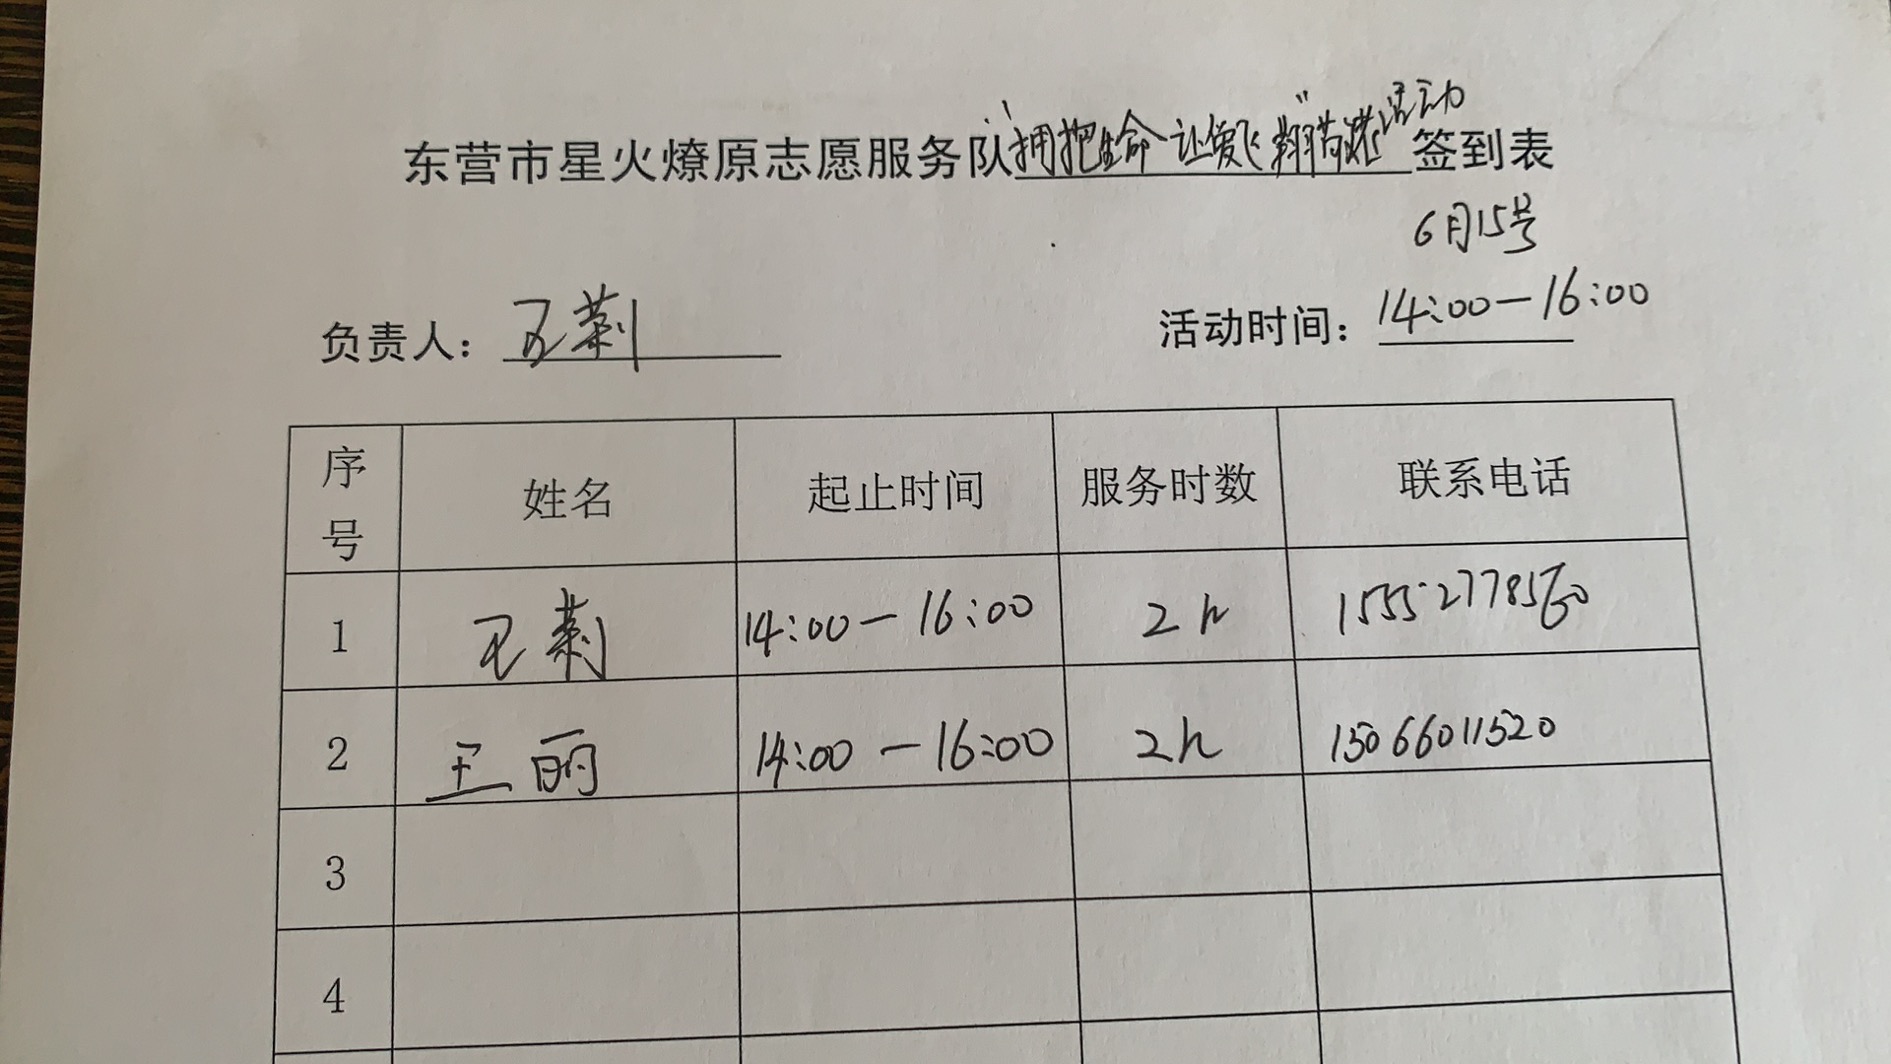 东营市星火燎原志愿服务队"拥抱生命 让爱飞翔"活动签到表
6月15号
负责人：王莉
活动时间：14:00—16:00
序号 姓名 起止时间 服务时数 联系电话
1 王莉 14:00—16:00 2h
2 王丽 14:00—16:00 2h 15066011520
3
4